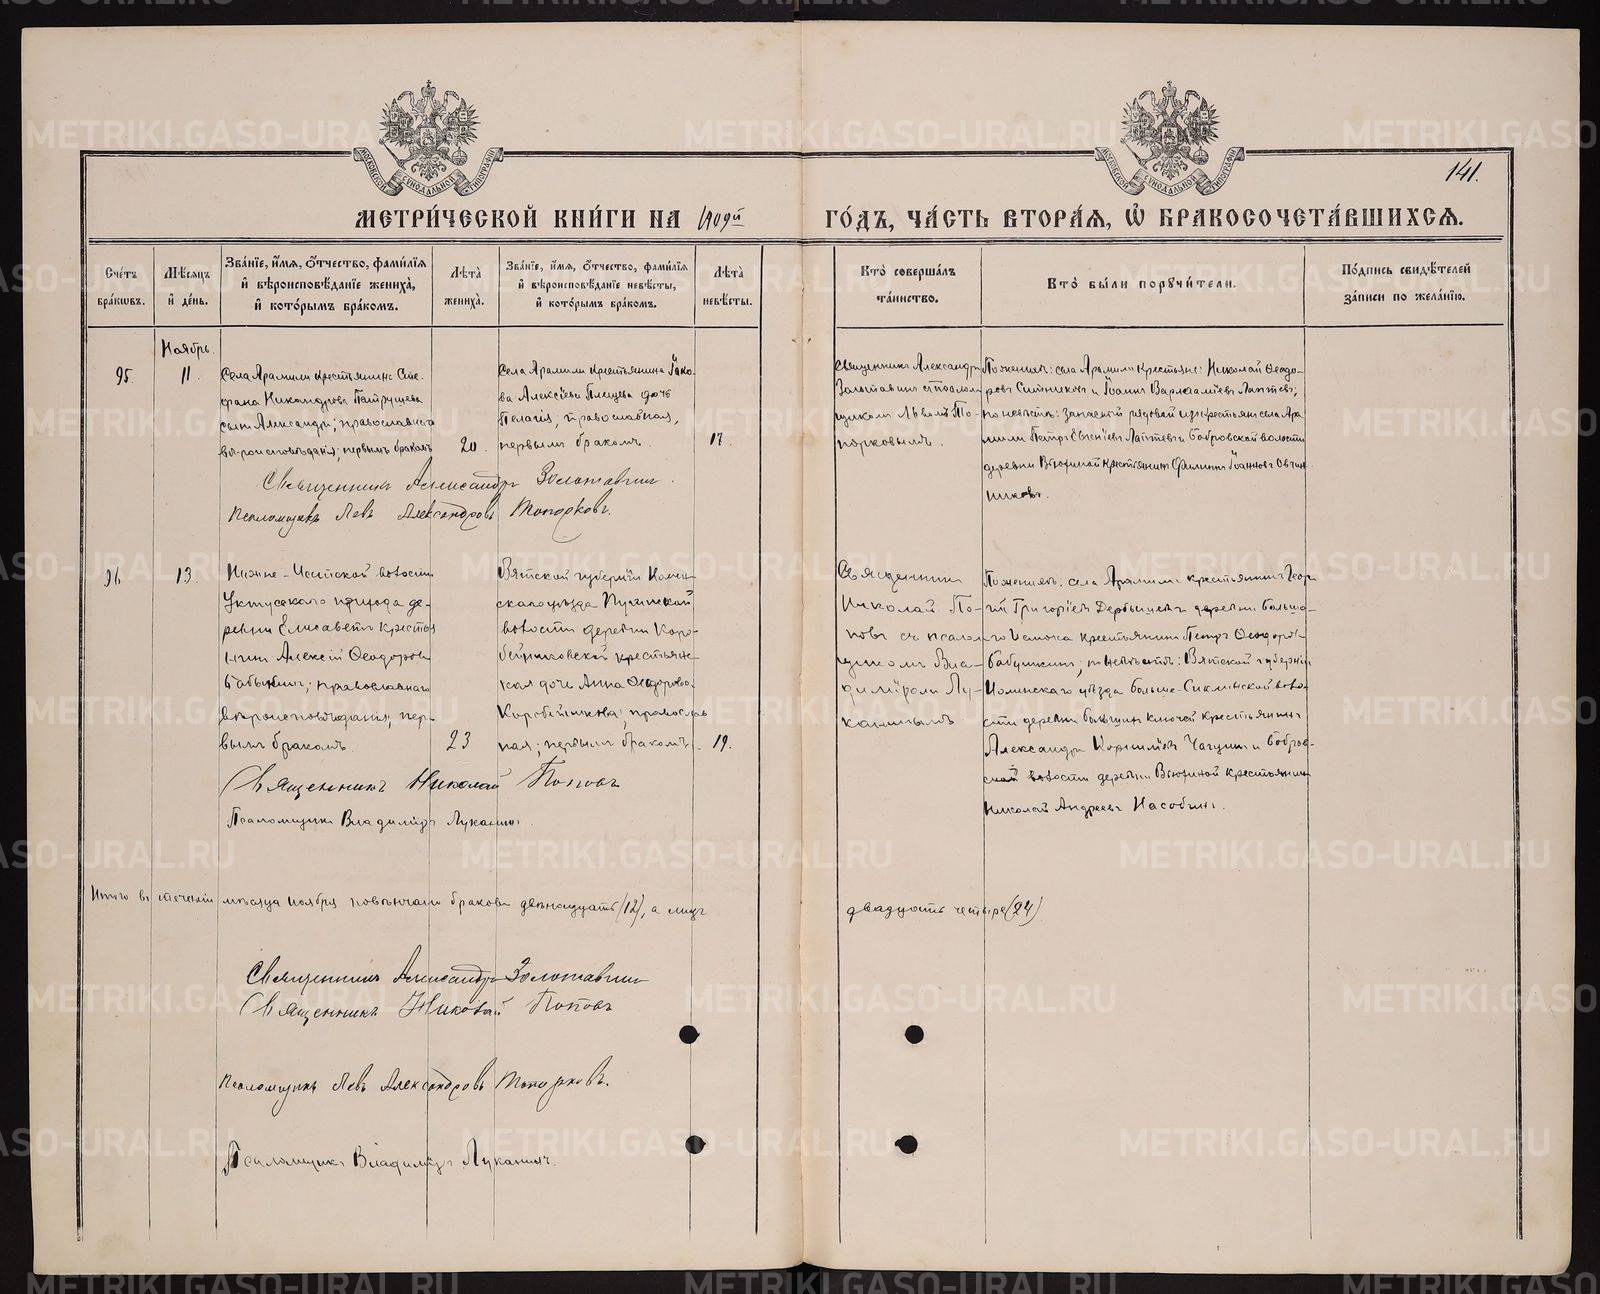 141.
МЕТРИ́ЧЕСКОЙ КНИ́ГИ НА 1909й ГО́ДЪ, ЧА́СТЬ ВТОРА́Я, Ѿ БРАКОСОЧЕТА́ВШИХСЯ.
Сче́тъ бра́кѡвъ.
Мѣ́сяцъ и҆ де́нь.
Зва́нїе, и҆́мя, ѻ҆́тчество, фами́лїя и҆ вѣроисповѣ́данїе жениха̀, и҆ кото́рымъ бра́комъ.
Лѣта̀ жениха̀.
Зва́нїе, и҆́мя, ѻ҆́тчество, фами́лїя и҆ вѣроисповѣ́данїе невѣ́сты, и҆ кото́рымъ бра́комъ.
Лѣта̀ невѣ́сты.
Кто̀ соверша́лъ та́инство.
Кто̀ бы́ли порꙋчи́тели.
По́дпись свидѣ́телей за́писи по жела́нїю.
Ноябрь.
95.
11.
Села Арамили крестьянинъ Сте-
фана Никандрова Патрушева
сынъ Александръ; православнаго
вѣроисповѣданія; первымъ бракомъ
20.
Села Арамили крестьянина Іако-
ва Алексіева Плещева дочь
Пелагія, православная,
первымъ бракомъ.
17.
Священникъ Александръ
Золотавинъ съ псалом-
щикомъ Львомъ То-
порковымъ.
По женихѣ: села Арамили крестьяне: Николай Ѳеодо-
ровъ Ситниковъ и Іоаннъ Варлааміевъ Лаптевъ;
по невѣстѣ: запасный рядовой изъ крестьянъ села Ара-
мили Петръ Евгеніевъ Лаптевъ Бобровской волости
деревни Вьюхиной крестьянинъ Филиппъ Іоанновъ Овчин-
никовъ.
Священникъ Александръ Золотавинъ.
Псаломщикъ Левъ Александровъ Топорковъ.
96.
13.
Нижне-Исетской волости
Уктусскаго прихода де-
ревни Елисаветъ крестья-
нинъ Алексій Ѳеодоровъ
Бабушкинъ; православнаго
вѣроисповѣданія; пер-
вымъ бракомъ.
23
Вятской губерніи Нолин-
скаго уѣзда
волости деревни Коро-
бейниковской крестьян-
ская дочь Анна Ѳеодорова
Коробейникова; православ-
ная; первымъ бракомъ.
19.
Священникъ
Николай По-
повъ съ псалом-
щикомъ Вла-
диміромъ Лу-
канинымъ
По женихѣ: села Арамили крестьянинъ Геор-
гій Григоріевъ Дербышевъ деревни Больша-
го Истока крестьянинъ Петръ Ѳеодоровъ
Бабушкинъ; по невѣстѣ: Вятской губерніи
Нолинскаго уѣзда волос-
сти деревни ключей крестьянинъ
Александръ Корниліевъ Чагунъ и Бобров-
ской волости деревни Вьюхиной крестьянинъ
Николай Андреевъ Насобинъ.
Священникъ Николай Поповъ
Псаломщикъ Владиміръ Луканинъ.
Итого въ теченіи мѣсяца ноября повѣнчано браковъ двѣнадцать (12), а лицъ двадцать четыре (24)
Священникъ Александръ Золотавинъ
Священникъ Николай Поповъ
Псаломщикъ Левъ Александровъ Топорковъ.
Псаломщикъ Владиміръ Луканинъ.
METRIKI.GASO-URAL.RU